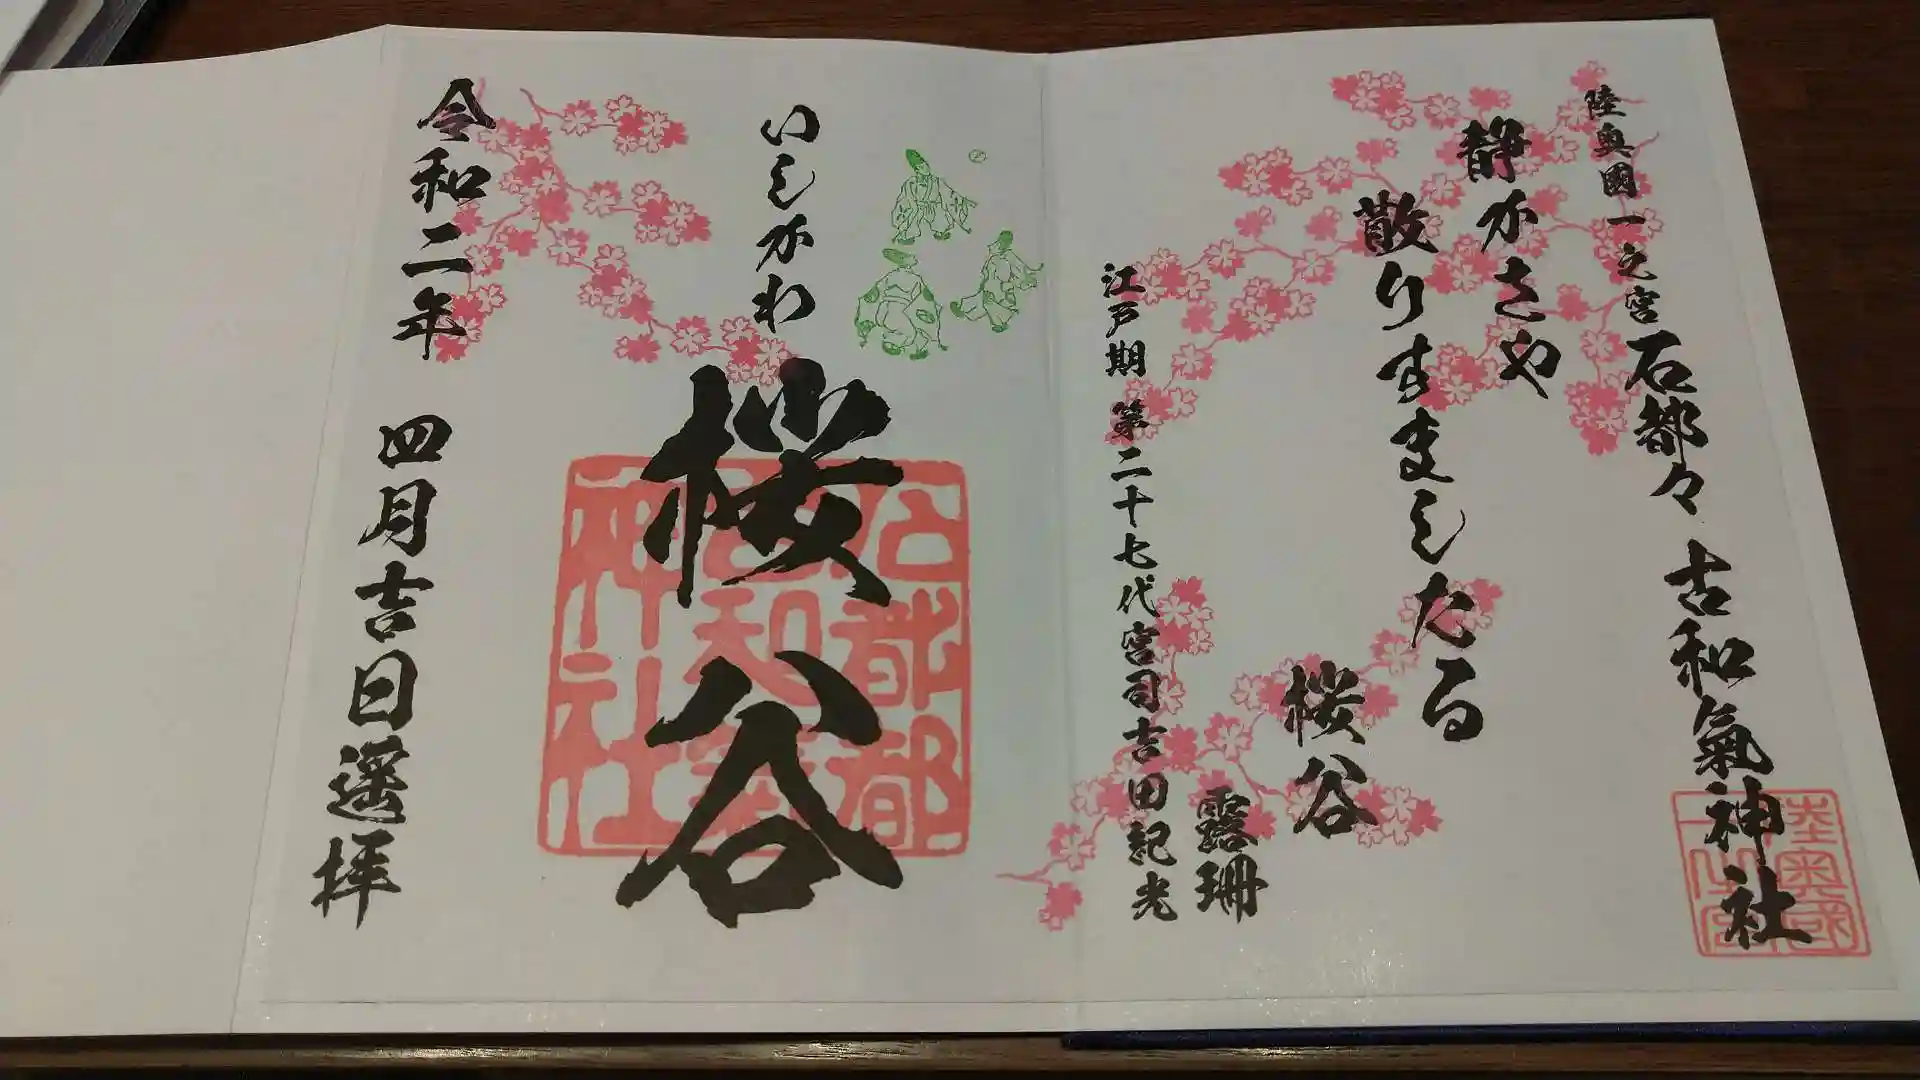 陸奥國一之宮 石都々古和氣神社
静かさや
散りすましたる
桜谷
露珊
江戸期 第二十七代宮司吉田紀光
いしかわ
桜谷
令和二年 四月吉日遥拝
石都都
古和氣
神社
陸奥國
一之宮